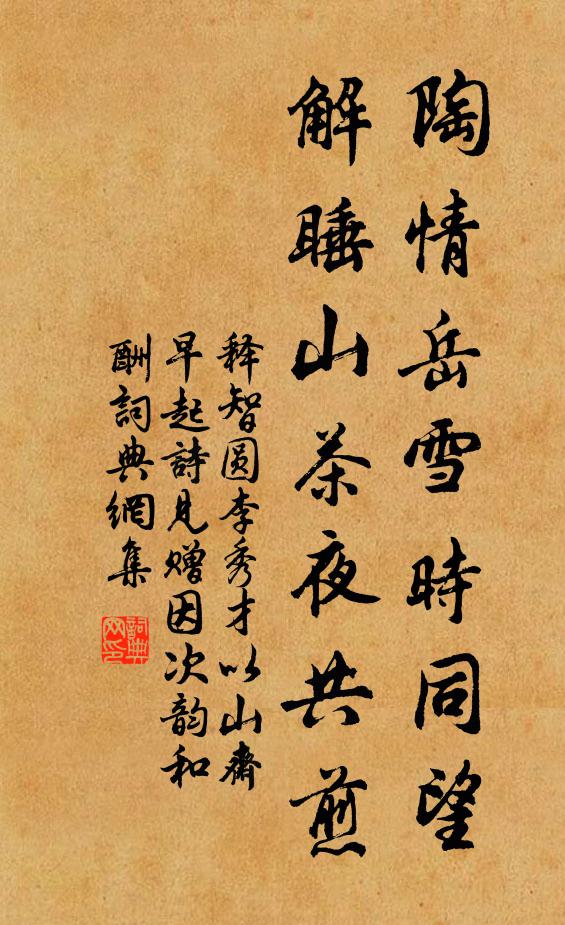 陶情岳雪時同望
解睡山茶夜共煎
释智圆李秀才以山齋
早起詩見赠因次韵和
酬詞典網集
詞典网印